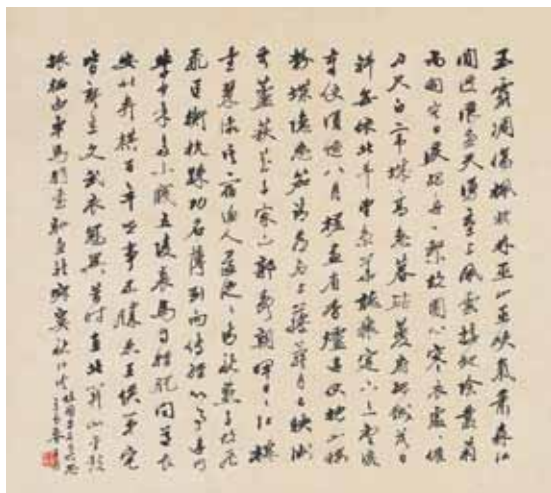 玉露凋傷楓樹林巫山巫峽氣蕭森江
間波浪兼天湧塞上風雲接地陰叢菊
兩開他日淚孤舟一繫故園心寒衣處處催
刀尺白帝城高急暮砧夔府孤城落日
斜每依北斗望京華聽猿實下三聲淚
奉使虛隨八月槎畫省香爐違伏枕山樓
粉堞隱悲笳請看石上藤蘿月已映洲
前蘆荻花千家山郭靜朝暉日日江樓
坐翠微信宿漁人還泛泛清秋燕子故飛
飛匡衡抗疏功名薄劉向傳經心事違同
學少年多不賤五陵衣馬自輕肥聞道長
安似弈棋百年世事不勝悲王侯第宅
皆新主文武衣冠異昔時直北關山金鼓
振征西車馬羽書馳魚龍寂寞秋江冷
故國平居有所思